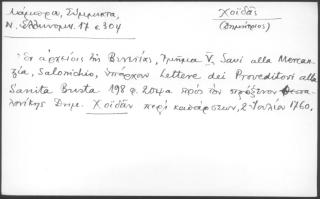 Λάμπρος, Σύμμικτα,
Ν. Ἑλληνομν. 17 σ 304
Χοϊδᾶς
(Δημήτριος)
Ἐν ἀρχείοις τῆς Βενετίας, Τμῆμα V, Savi alla Mercan-
zia, Salonichio, ὑπάρχουν Lettere dei Proveditori alla
Sanita Busta 198 φ. 204α πρὸς τὸν πρόξενον Θεσσα-
λονίκης Δημ. Χοϊδᾶν περὶ καθάρσεων, 2 Ἰουλίου 1760.